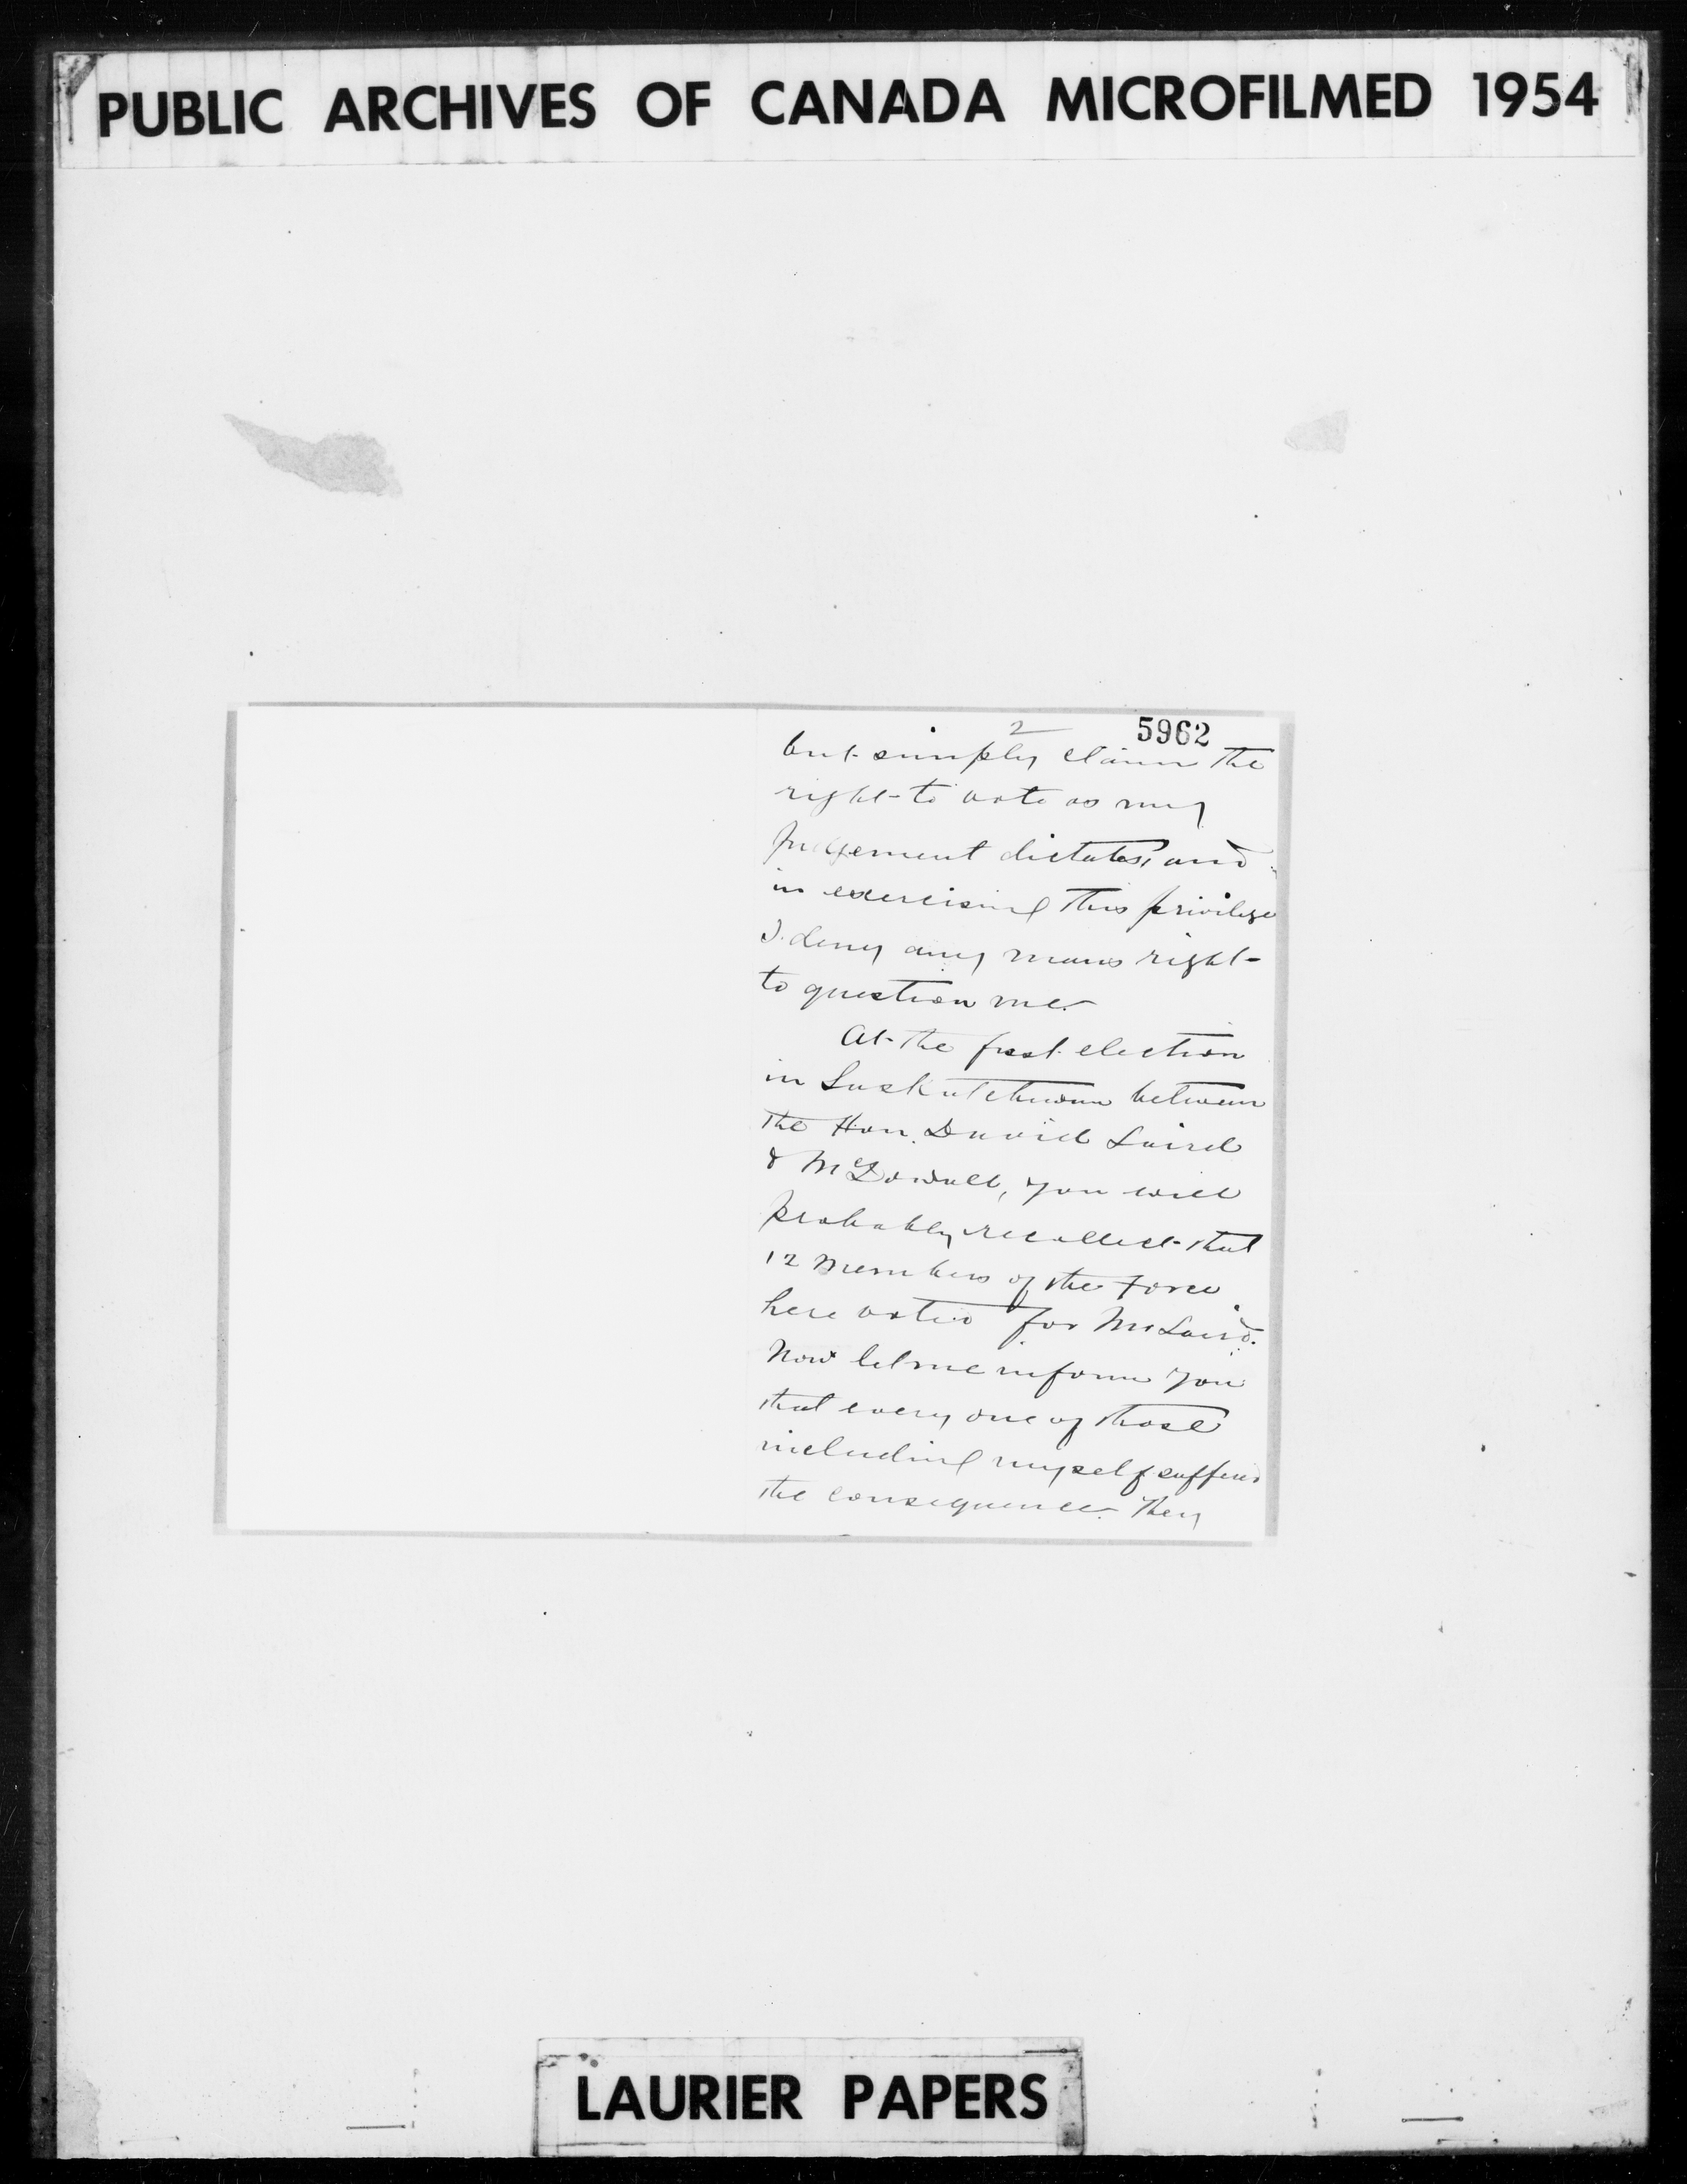 PUBLIC ARCHIVES OF CANADA MICROFILMED 1954
2
5962
but simply claim the
right to vote as my
judgement dictates, and
in exercising this privilege
I deny any mans right
to question me.
At the first election
in Saskatchewan between
the Hon. David Laird
& McDowall, you will
probably recollect that
12 members of the Force
here voted for Mr Laird.
Now let me inform you
that every one of those
including myself suffered
the consequence. They
LAURIER PAPERS